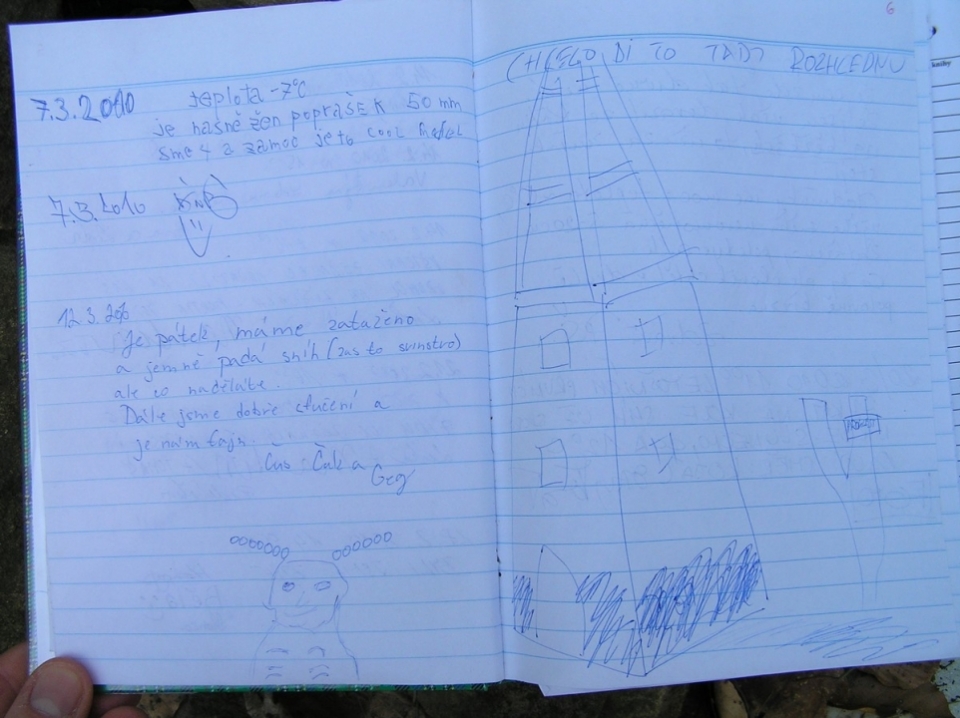 7.3.2010 teplota -7°C
je nasněžen poprašek 50 mm
sme 4 a zamoc je to cool
7.3.2010
12.3.2010
Je pátek, máme zataženo
a jemně padá sníh (zas to svinstvo)
ale co naděláte.
Dále jsme dobře
je nám fajn.
Čus Čak a
Geg
6
CHCELO BI TO TADY ROZHLEDNU